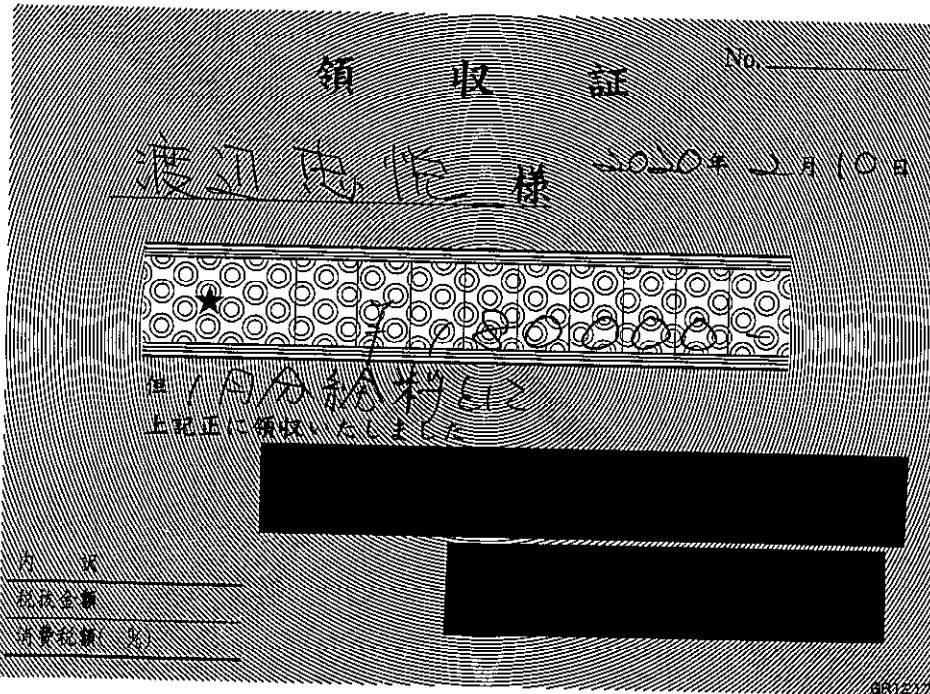 領収証
No.
渡辺忠悦様
2020年2月10日
★
¥180000-
但 1月分給料として
上記正に領収いたしました
内訳
税抜金額
消費税額( %)